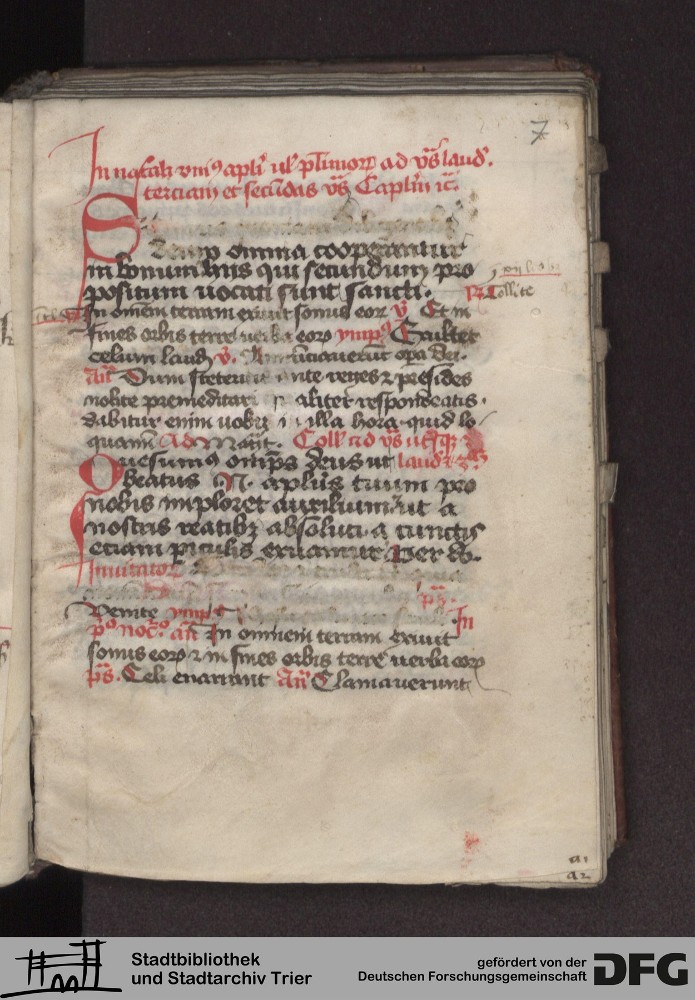 7
In natali vniꝰ apli ul̕ plimorꝝ ad vs̄ laud̕.
terciam et secūdas vs̄ Caplm̄
S
omnia cooperantur
in bonum hiis qui secundum pro
positum uocati sunt sancti.
Collite
In omnem terram exiuit sonus eor̕ v̄ Et in
fines orbis terre uerba eorꝝ ympꝰ Exultet
celum laud̕ v̄. Annūciauerūt opa dei.
An̄ Dum steteritis ante reges ⁊ presides
nolite premeditari qualiter respondeatis.
dabitur enim uobis in illa hora quid lo
quamī Ad Coll̕ ad vs̄
Quesumꝰ omps̄ deus ut laud̕
beatus N. aplūs tuum pro
nobis imploret auxilium ut a
nostris reatibꝫ absoluti a cunctis
eciam piculis eruamur Per d.
Inuitator̕
ps̄.
Venite ympꝰ In
pᵒ nocᵒ. an̄ In omnem terram exiuit
sonus eorꝝ ⁊ in fines orbis terre uerba eorꝝ
ps̄. Celi enarrant An̄ Clamauerunt
a1
a2
Stadtbibliothek
und Stadtarchiv Trier
gefördert von der
Deutschen Forschungsgemeinschaft
DFG